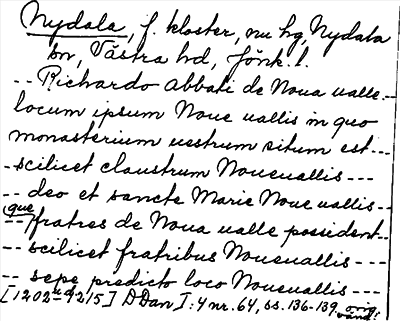 Nydala, f. kloster, nu hg, Nydala
sn, Västra hd, Jönk. l.
-- Richardo abbati de Noua ualle --
locum ipsum Noue uallis in quo
monasterium uestrum situm est ---
-- scilicet claustrum Noueuallis ---
-- deo et sancte Marie Noue uallis --
que
-- fratres de Noua ualle possident --
-- scilicet fratribus Nouevallis ---
-- sepe predicto loco Nouevallis ---
[1202-1215] DDan I:4 nr. 64, ss. 136-139.